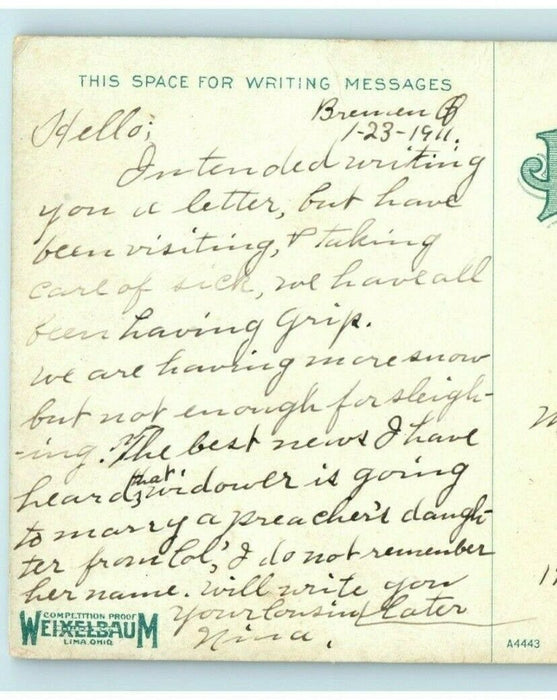 THIS SPACE FOR WRITING MESSAGES
Bremen O
1-23-1911.
Hello;
Intended writing
you a letter, but have
been visiting, & taking
care of sick, we have all
been having Grip.
we are having more snow
but not enough for sleigh-
-ing. The best news I have
heard, that widower is going
to marry a preacher's daugh-
ter from Col', I do not remember
her name. will write you
later
Your Cousin
Nina.
COMPETITION PROOF
WEIXELBAUM
LIMA, OHIO
A4443